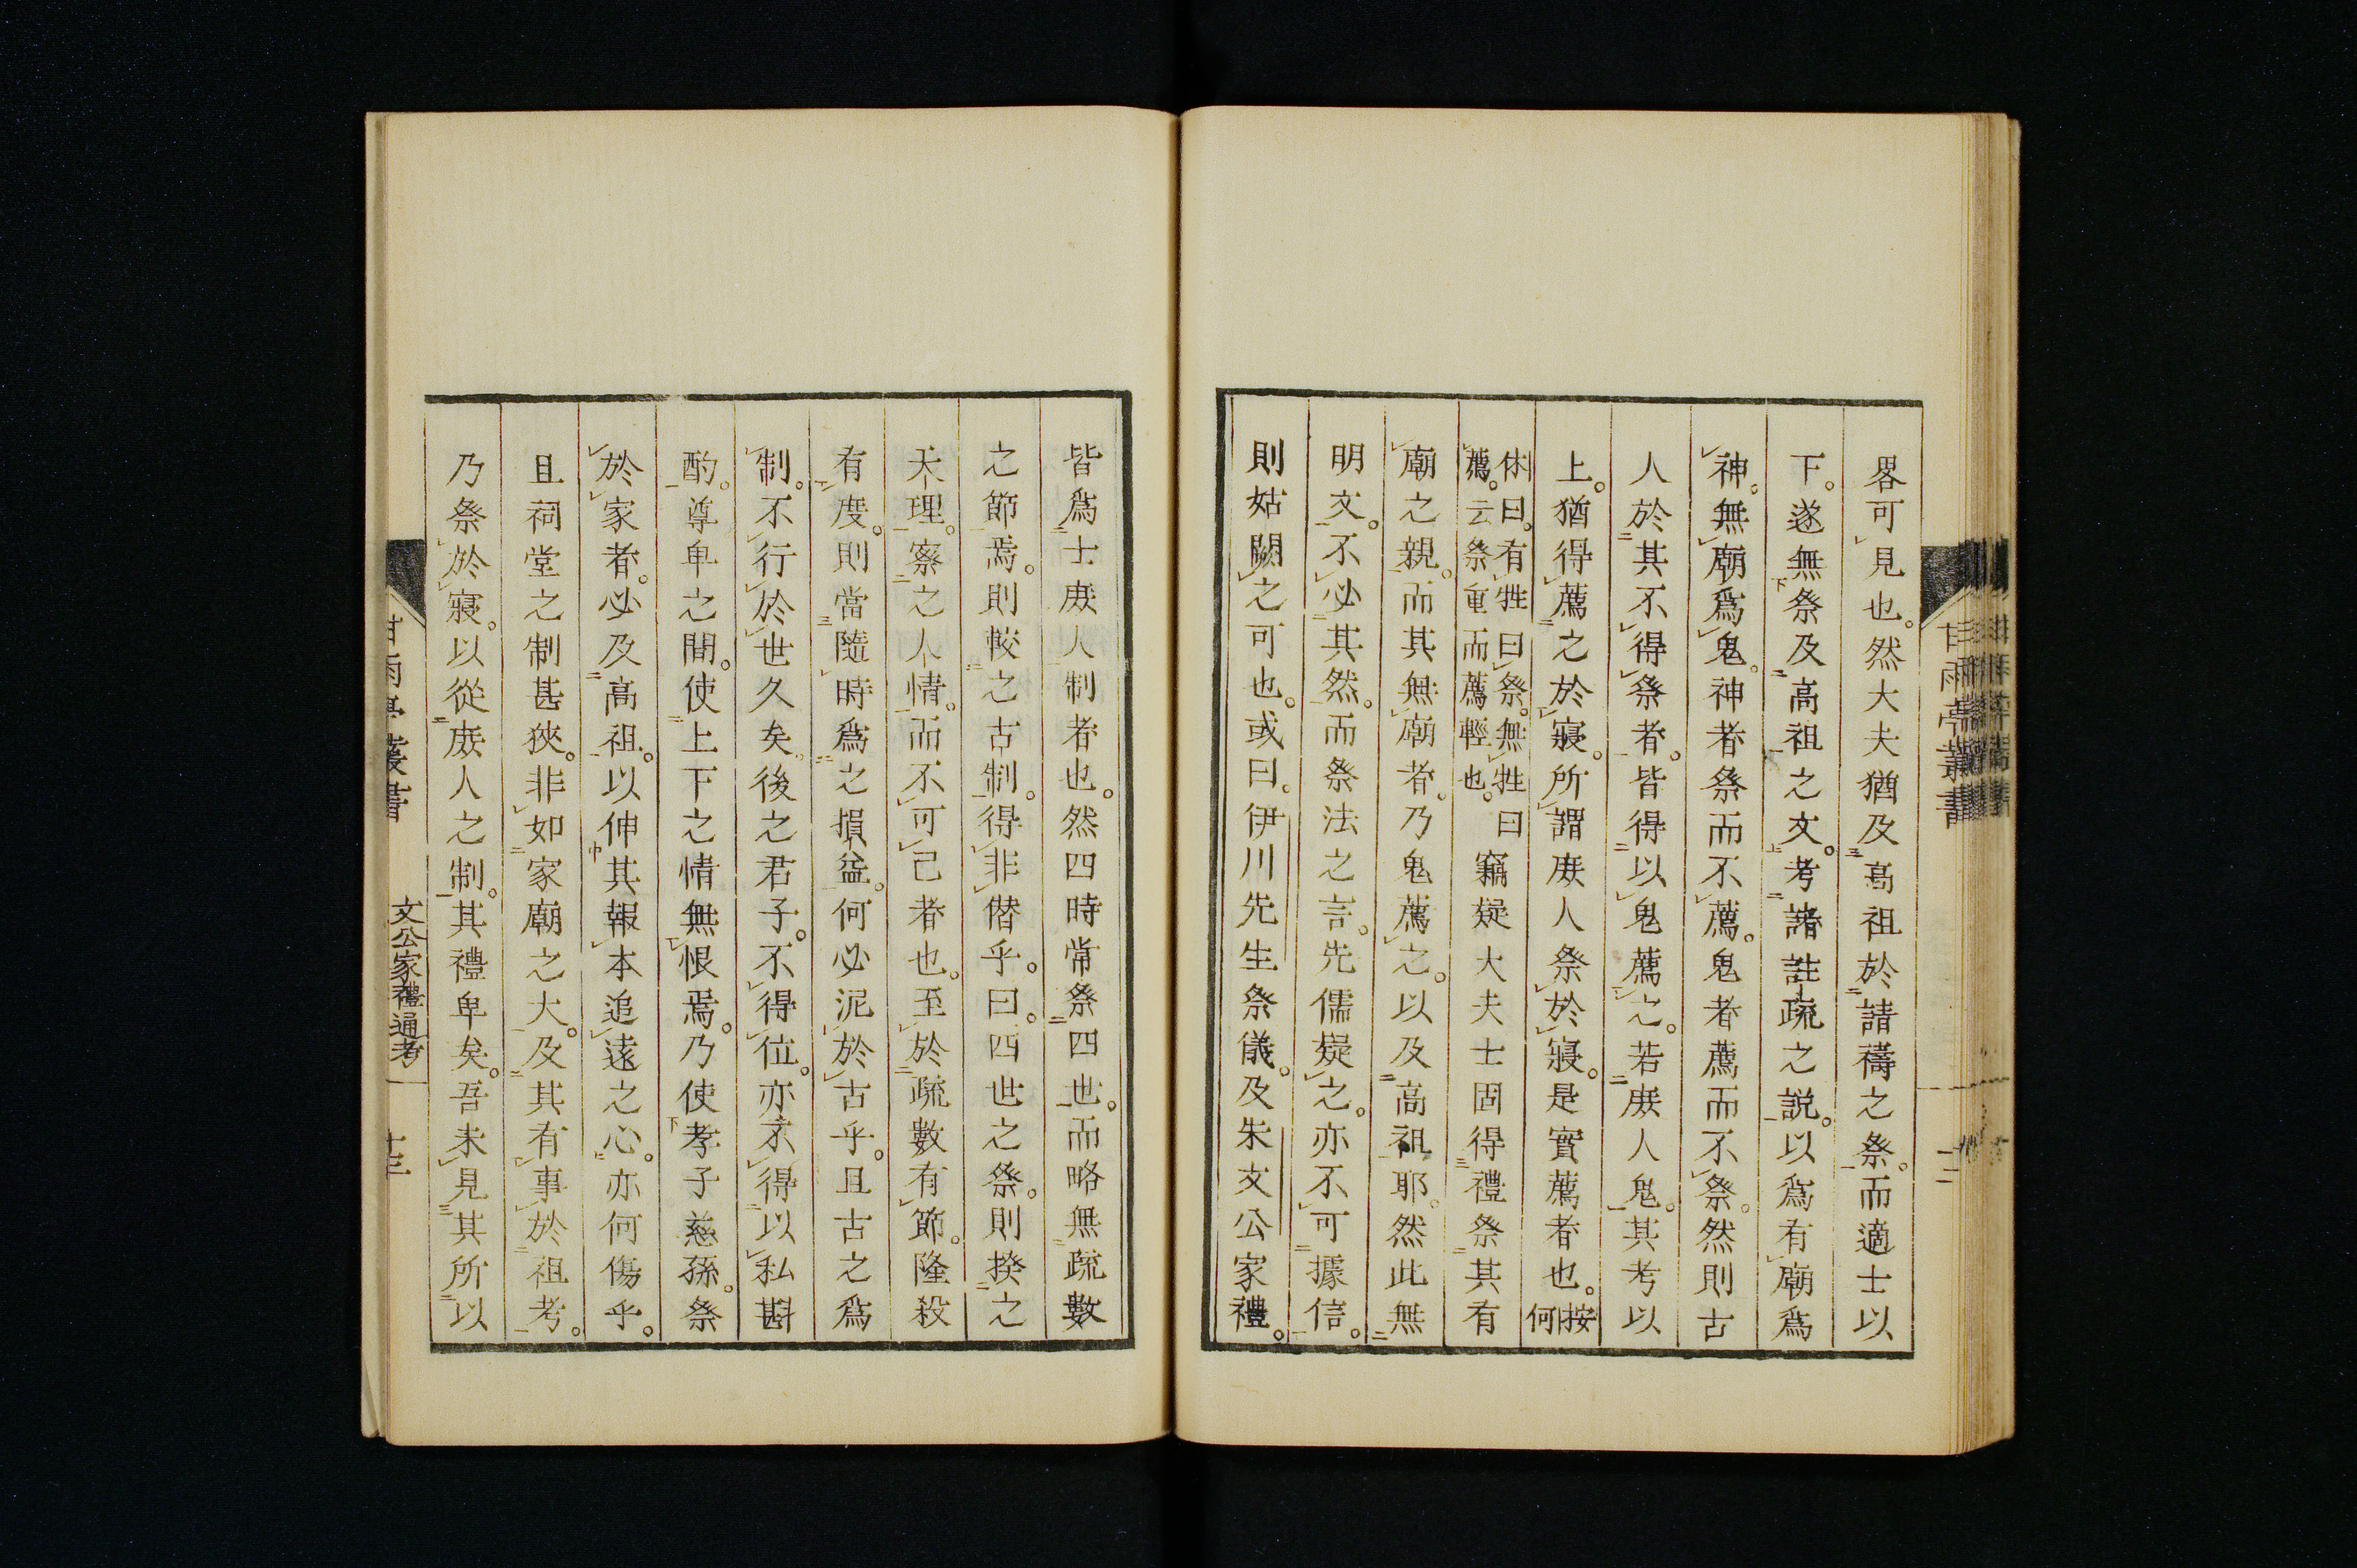 畧可見也。然大夫猶及高祖於請禱之祭。而適士以
下。遂無祭及高祖之文。考諸註疏之説。以爲有廟爲
神。無廟爲鬼。神者祭而不薦。鬼者薦而不祭。然則古
人於其不得祭者。皆得以鬼薦之。若庻人鬼。其考以
上。猶得薦之於寢。所謂庻人祭於寢。是實薦者也。按何
休曰。有牲曰祭。無牲曰
薦。云祭重而薦輕也。
竊疑大夫士固得禮祭其有
廟之親。而其無廟者。乃鬼薦之。以及高祖耶。然此無
明文。不必其然。而祭法之言。先儒疑之。亦不可據信。
則姑闕之可也。或曰。伊川先生祭儀。及朱文公家禮。
甘雨亭叢書
皆爲士庻人制者也。然四時常祭四世。而略無疏數
之節焉。則較之古制。得非僣乎。曰。四世之祭。則揆之
天理。察之人情。而不可已者也。至於疏數有節。隆殺
有度。則當隨時爲之損益。何必泥於古乎。且古之爲
制。不行於世久矣。後之君子。不得位。亦不得以私斟
酌。尊卑之間。使上下之情無恨焉。乃使孝子慈孫。祭
於家者。必及高祖。以伸其報本追遠之心。亦何傷乎。
且祠堂之制甚狹。非如家廟之大。及其有事於祖考。
乃祭於寢。以從庻人之制。其禮卑矣。吾未見其所以
甘雨亭叢書
文公家禮通考
十三